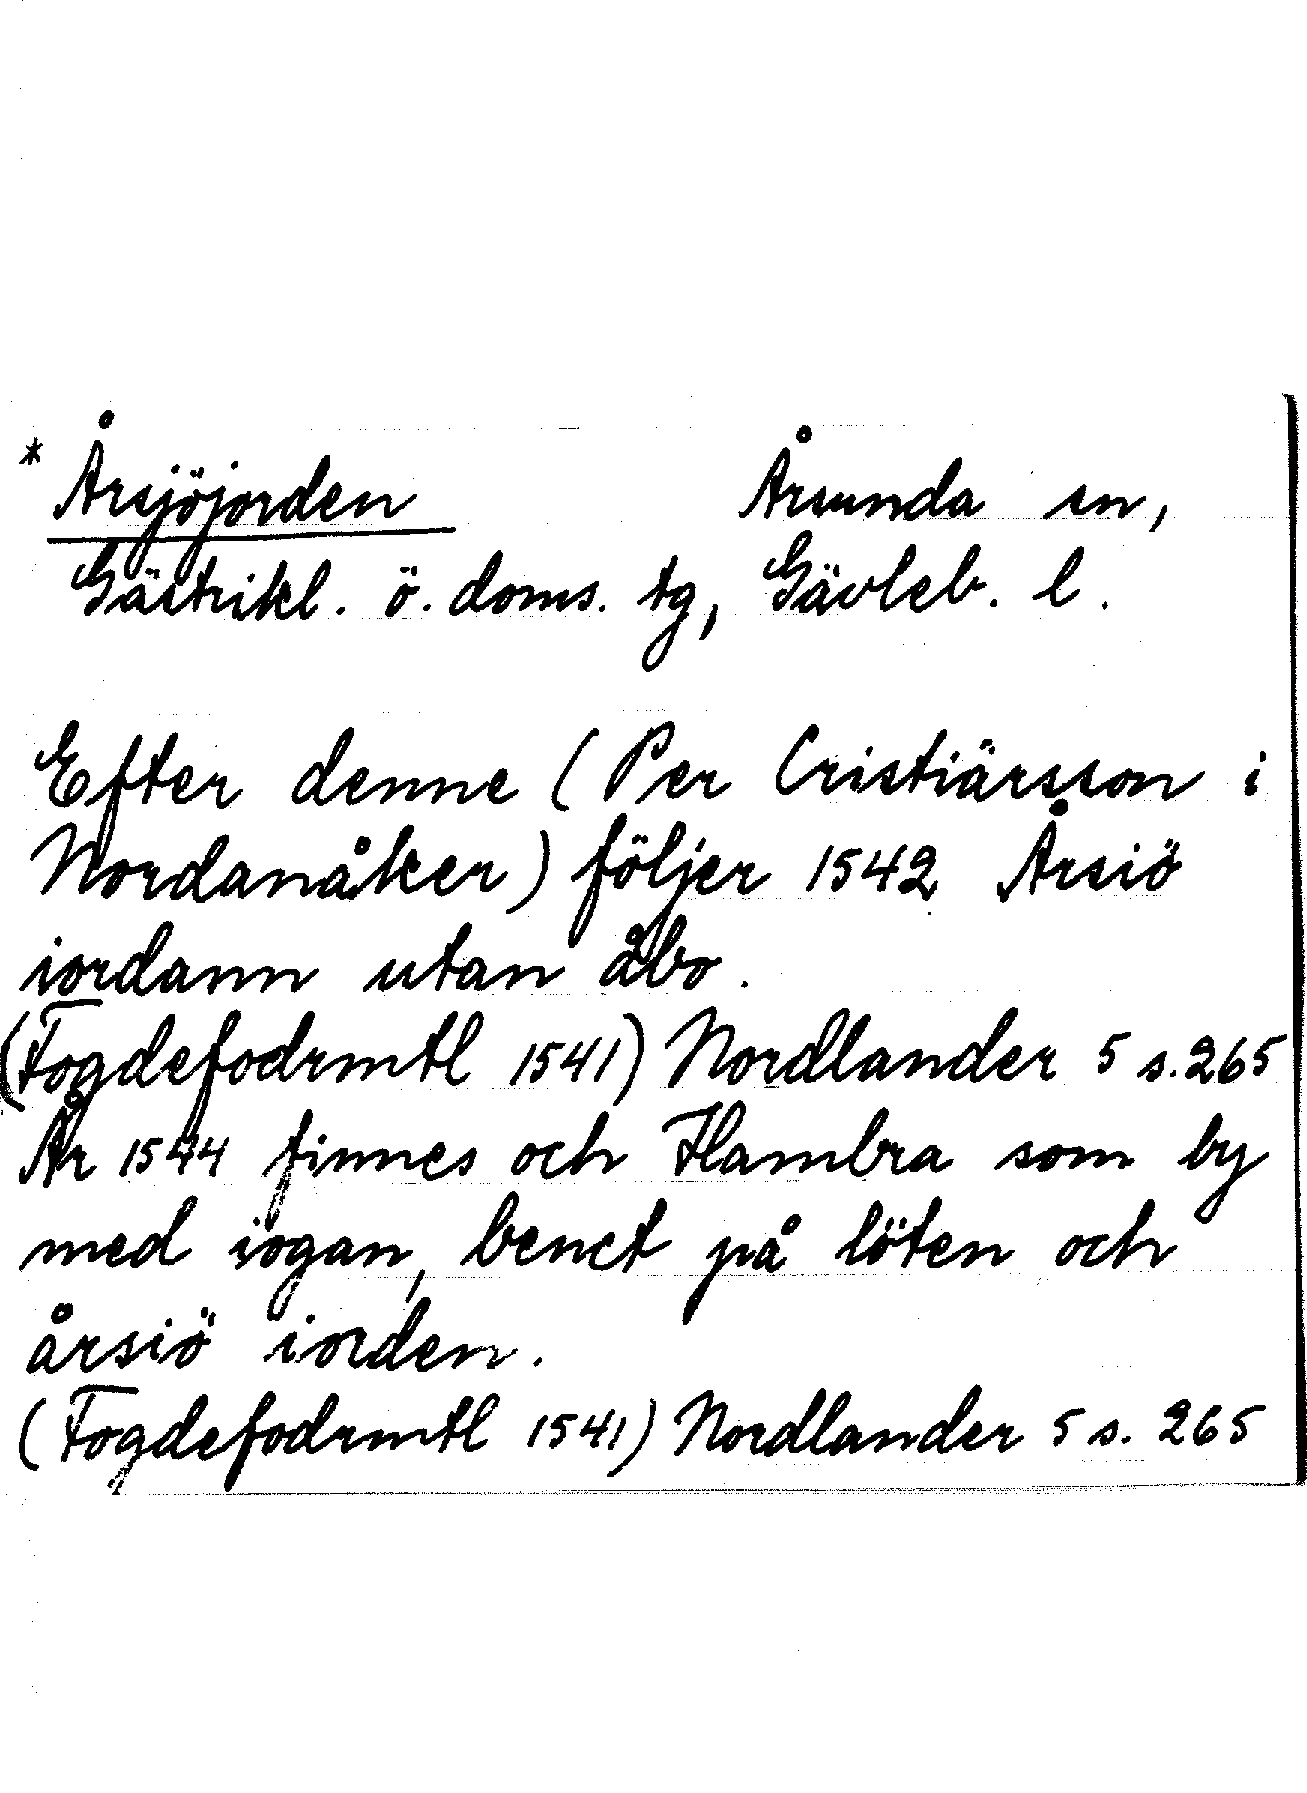 * Årsjöjorden Årsunda sn,
Gästrikl. ö. doms. tg, Gävleb. l.
Efter denne (Per Cristiärsson i
Nordanåker) följer 1542 Årsiö
iordann utan åbo.
(Fogdefodrmtl 1541) Nordlander 5 s. 265
År 1544 finnes och Hambra som by
med iogan, benct på löten och
årsiö iorden.
(Fogdefodrmtl 1541) Nordlander 5 s. 265